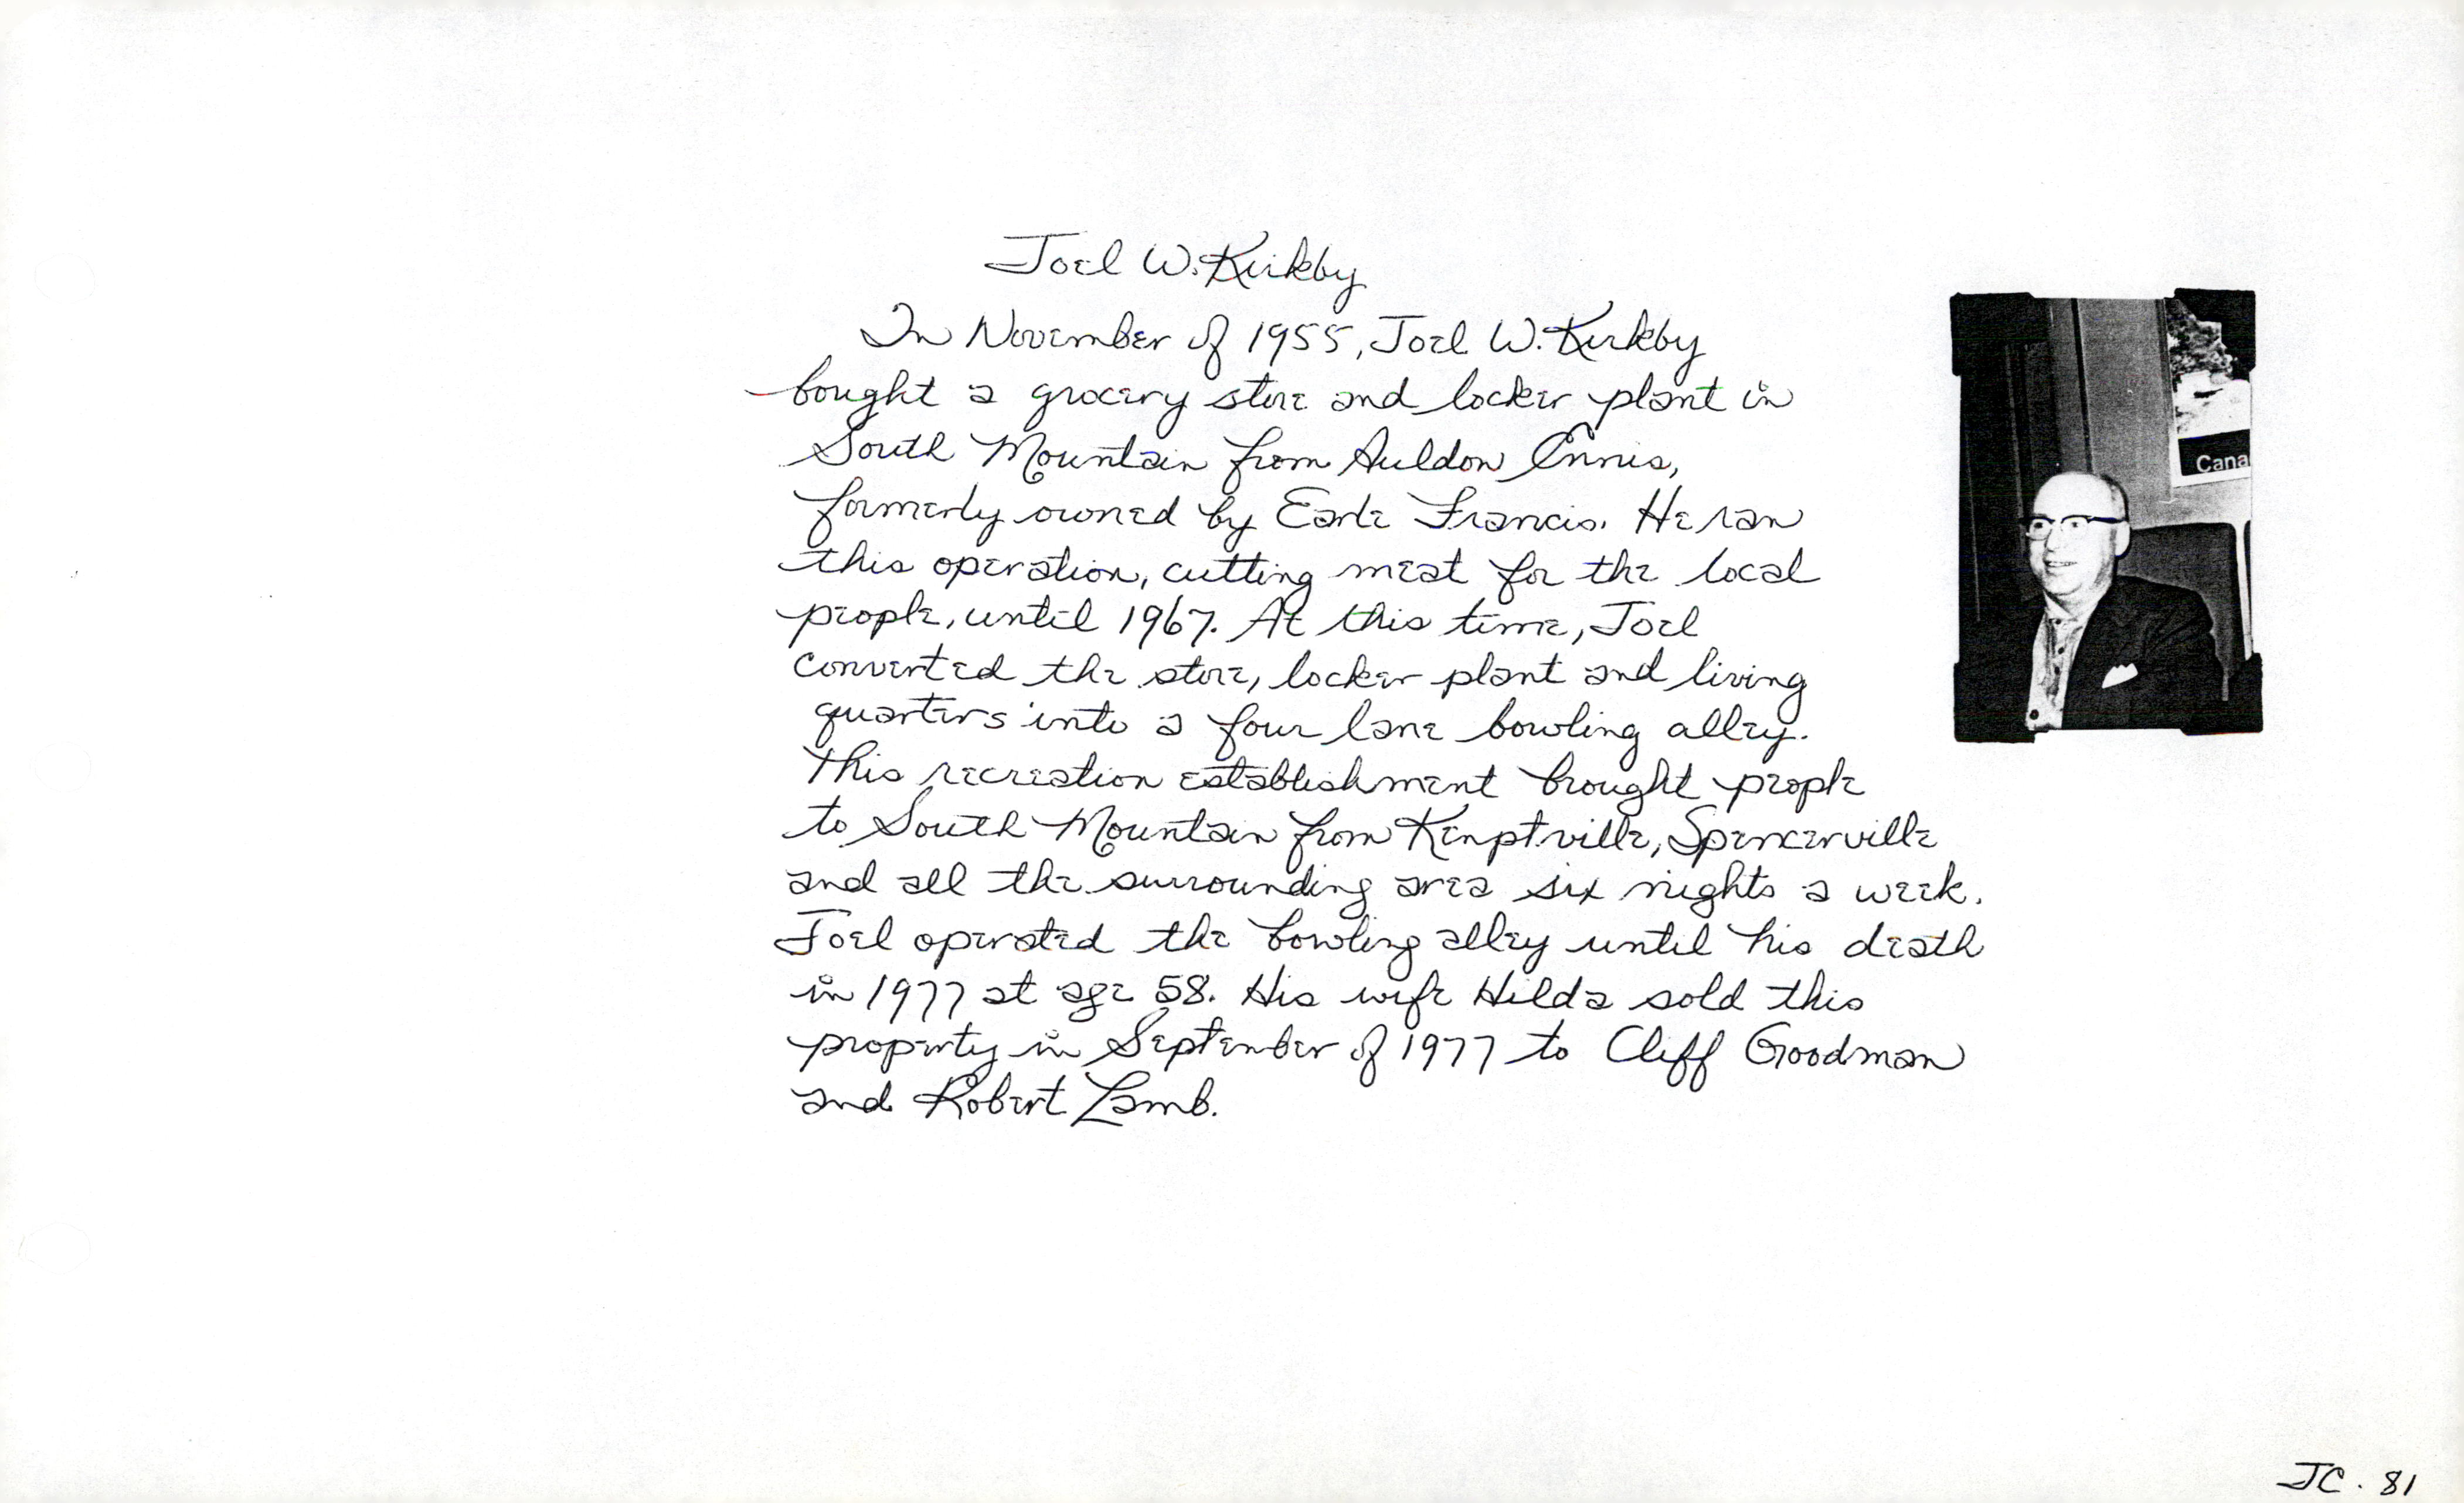 Joel W. Kirkby
In November of 1955, Joel W. Kirkby
bought a grocery store and locker plant in
South Mountain from Auldon Ennis,
formerly owned by Earle Francis. He ran
this operation, cutting meat for the local
people, until 1967. At this time, Joel
converted the store, locker plant and living
quarters into a four lane bowling alley.
This recreation establishment brought people
to South Mountain from Kemptville, Spencerville
and all the surrounding area six nights a week.
Joel operated the bowling alley until his death
in 1977 at age 58. His wife Hilda sold this
property in September of 1977 to Cliff Goodman
and Robert Lamb.
Cana
JC. 81